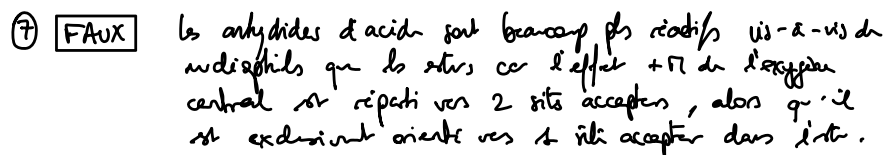 ⑦ FAUX Les anhydrides d'acide sont beaucoup plus réactifs vis-à-vis de
nucléophiles que les esters car l'effet +M de l'oxygène
central est réparti vers 2 sites accepteurs, alors qu'il
est exclusivement orienté vers 1 site accepteur dans l'ester.